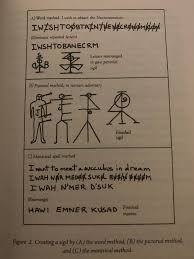 A) Word method. I wish to obtain the Necronomicon:
I WISH TO OBTAIN THE NECRONOMICON
Eliminate repeated letters:
IWSHTOBANECRM
Letters rearranged
to give pictorial
sigil
B) Pictorial method, to restrain adversary
Finished
sigil
C) Mantrical spell method
I want to meet a succubus in dream
I WAH N'MER D'SUK
(Rearrange)
HAWI EMNER KUSAD
Finished
mantra.
Figure 2. Creating a sigil by (A) the word method, (B) the pictorial method,
and (C) the mantrical method.